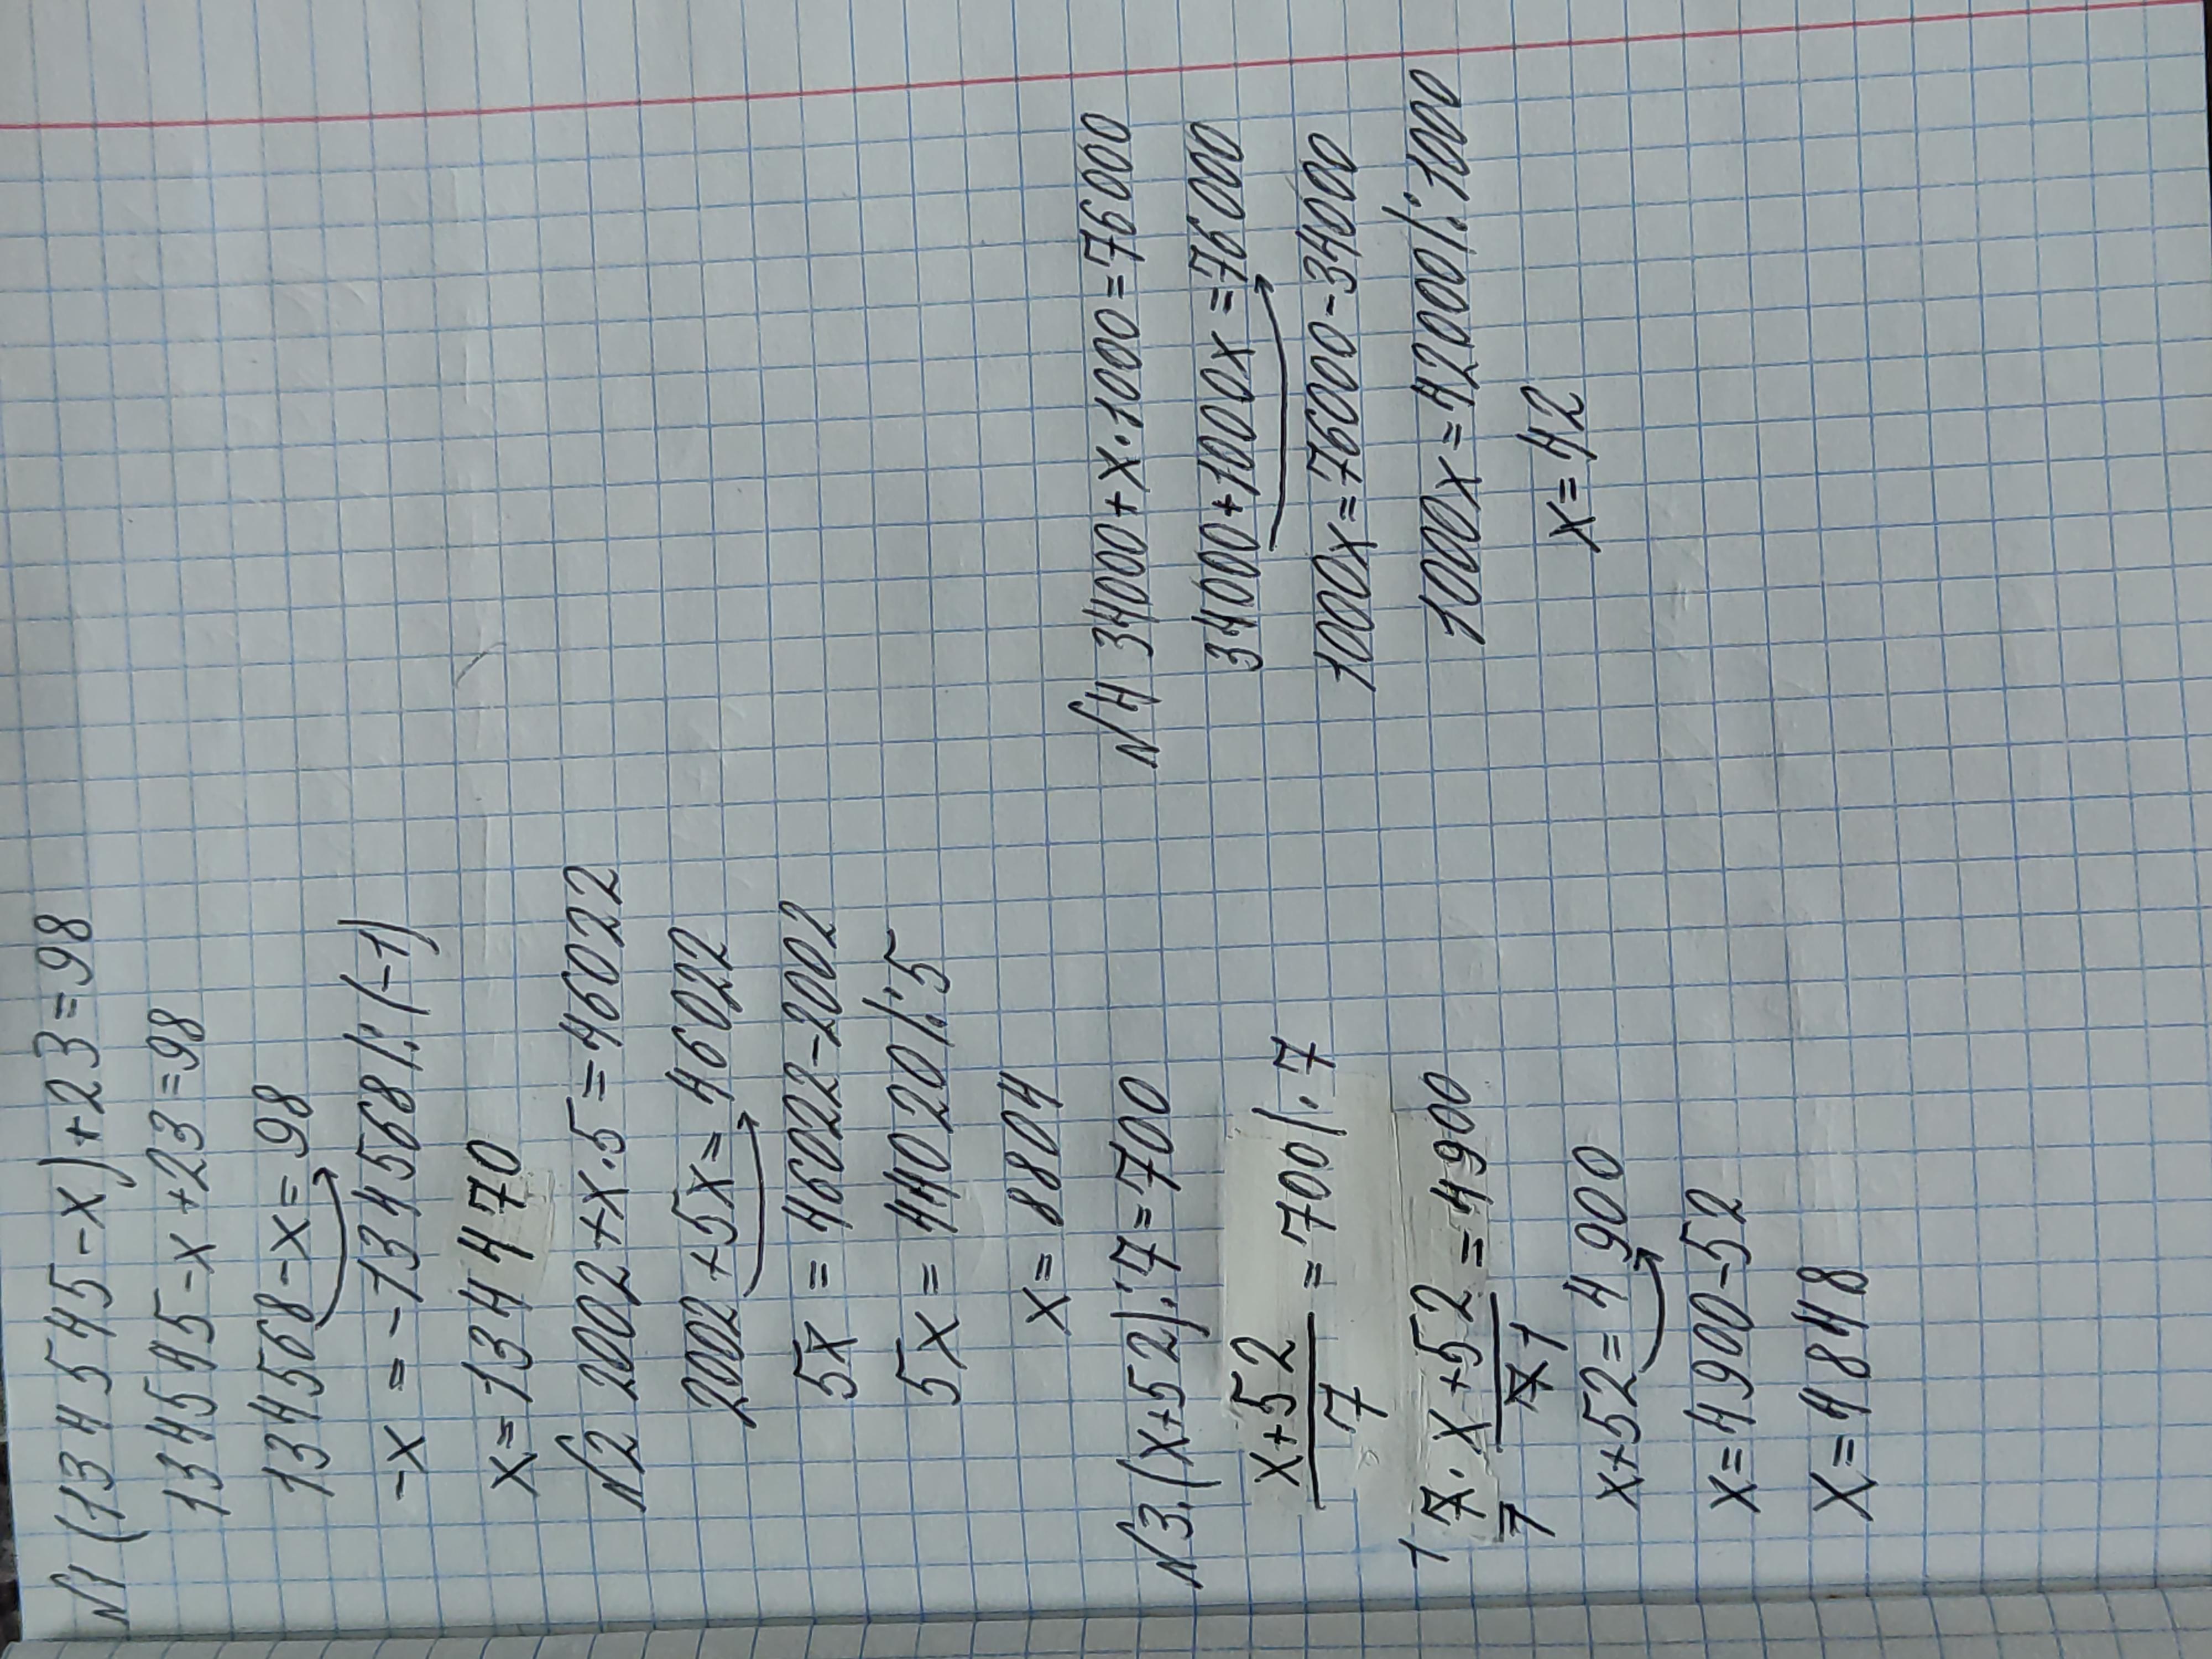 N1 (134 545 - x) + 23 = 98
134545 - x + 23 = 98
134568 - x = 98
-x = -134568 /: (-1)
x = 134 470
N2 2002 + x · 5 = 46022
2002 + 5x = 46022
5x = 46022 - 2002
5x = 44020 /: 5
x = 8804
N3. (x+52) : 7 = 700
x+52/7 = 700 /· 7
1 7/7 · x+52/7 1 = 4900
x+52 = 4900
x = 4900 - 52
x = 4848
N4 34000 + x · 1000 = 76000
34000 + 1000x = 76000
1000x = 76000 - 34000
1000x = 42000 /: 1000
x = 42